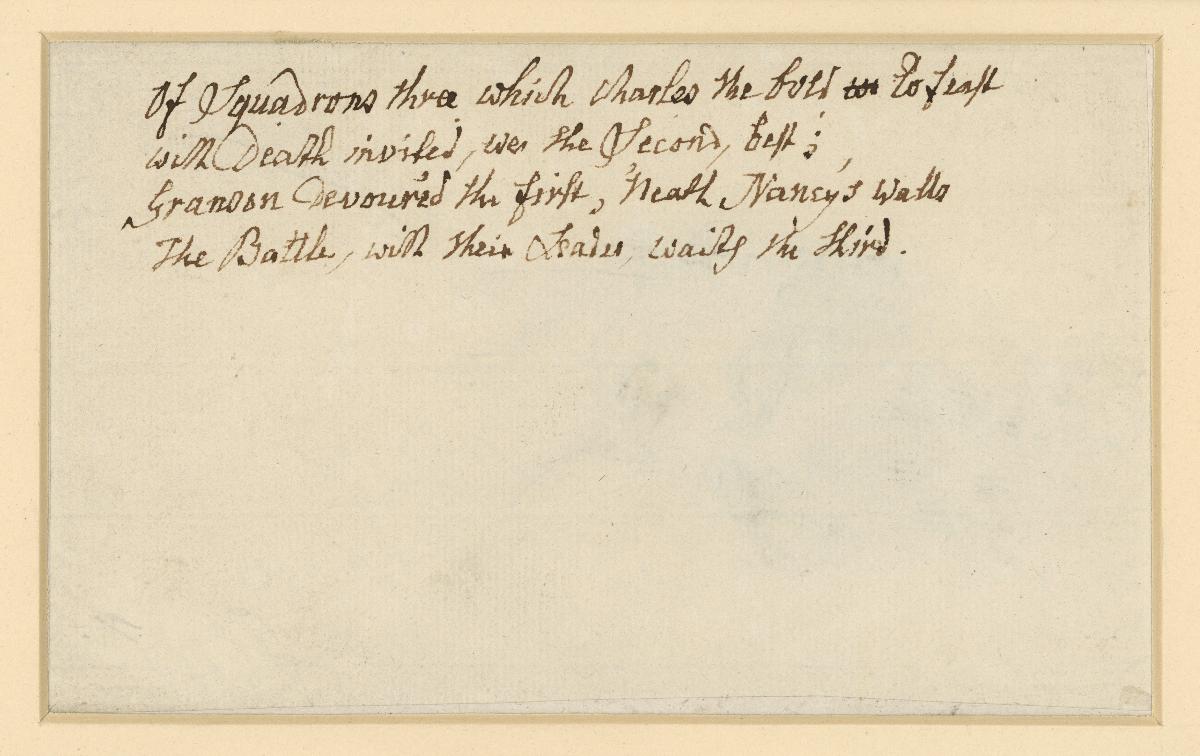 Of Squadrons three which Charles the bold to feast
with Death invited, we the Second, best;
Granson Devoured the first, 'Neath Nancy's walls
The Battle, with their Leader, waits the third.